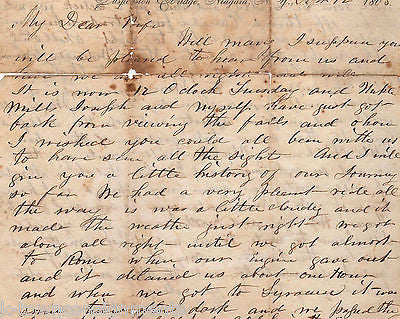 Suspension Bridge, Niagara, N.Y.
My Dear
Well mary I suppose you
will be pleased to hear from us and
we are all right and
It is now 12 O Clock Tuesday and
Will Joseph and myself have just got
back from viewing the falls and o how
I wished you could all been with us
to have seen all the sight And I will
give you a little history of our Journey
so far We had a very plesant ride all
the way is was a little cloudy and it
made the weathe just right we got
along all right until we got almost
to Rome when our engine gave out
and it delaned us about one hour
and when we got to Syracuse it was
some dark and we the